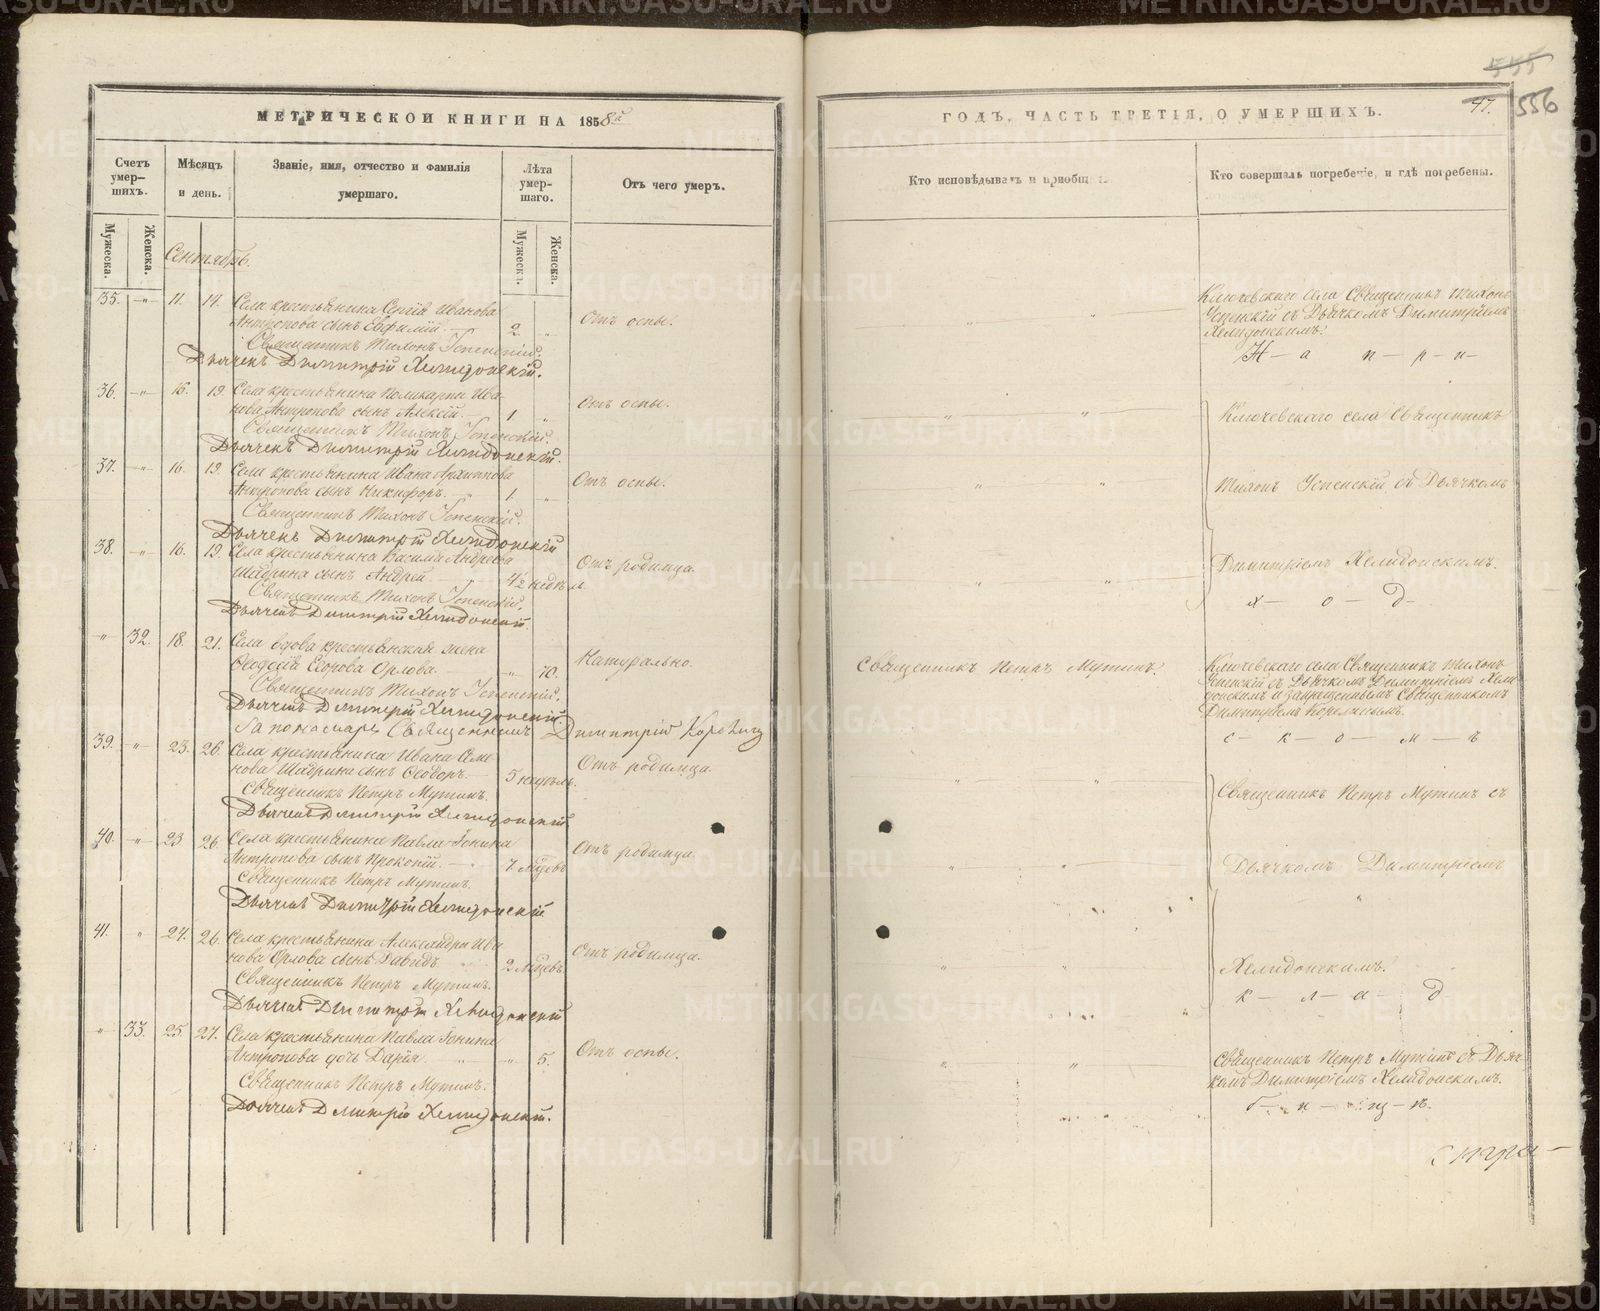 МЕТРИЧЕСКОЙ КНИГИ НА 1858й
Счетъ умер—шихъ.
Мѣсяцъ и день.
Званіе, имя, отчество и фамилія умершаго.
Лѣта умер—шаго.
Отъ чего умеръ.
Мужеска. Женска.
Мужеска. Женска.
Сентябрь.
35. „ 11. 14. Села крестьянина Сергія Иванова
Антропова сынъ Евфимій 2. „ Отъ оспы.
Священникъ Тихонъ Успенскій.
Дьячекъ Димитрій Хелидонскій.
36. „ 16. 19. Села крестьянина Поликарпа Ива-
нова Антропова сынъ Алексій. 1 „ Отъ оспы.
Священникъ Тихонъ Успенскій.
Дьячекъ Димитрій Хелидонскій.
37. „ 16. 19. Села крестьянина Ивана Архиппова
Антропова сынъ Никифоръ. 1 „ Отъ оспы.
Священникъ Тихонъ Успенскій.
Дьячекъ Димитрій Хелидонскій
38. „ 16. 19. Села крестьянина Василія Андреева
Шадрина сынъ Андрей 4½ недѣль. Отъ родимца.
Священникъ Тихонъ Успенскій.
Дьячекъ Димитрій Хелидонскій.
„ 32. 18. 21. Села вдова крестьянская жена
Ѳеодосія Егорова Орлова. „ 70. Натурально.
Священникъ Тихонъ Успенскій.
Дьячекъ Димитрій Хелидонскій.
За пономаря Священникъ Димитрій
39. „ 23. 26. Села крестьянина Ивана Семе
нова Шадрина сынъ Ѳеодоръ. 5 недѣль. Отъ родимца.
Священникъ Петръ Мутинъ.
Дьячекъ Димитрій Хелидонскій
40. „ 23 26. Села крестьянина Павла Іонина
Антропова сынъ Прокопій. 7 мѣсяцевъ Отъ родимца.
Священникъ Петръ Мутинъ.
Дьячекъ Димитрій Хелидонскій
41. „ 24. 26. Села крестьянина Александра Ива
нова Орлова сынъ Давидъ. 2 Отъ родимца.
Священникъ Петръ Мутинъ.
Дьячекъ Димитрій Хелидонскій
„ 33. 25. 27. Села крестьянина Павла Іонина
Антропова дочь Дарія „ 5. Отъ оспы.
Священникъ Петръ Мутинъ.
Дьячекъ Димитрій Хелидонскій.
555
47. 556
ГОДЪ, ЧАСТЬ ТРЕТІЯ, О УМЕРШИХЪ.
Кто исповѣдывалъ и приобщ
Кто совершалъ погребеніе, и гдѣ погребены.
Ключевскаго села Священникъ Тихонъ
Успенскій съ Дьячкомъ Димитріемъ
Хелидонскимъ.
Н — а п — р — и —
Ключевскаго села Священникъ
Тихонъ Успенскій съ Дьячкомъ
Димитріемъ Хелидонскимъ.
х — о — д —
Священникъ Петръ Мутинъ.
Ключевскаго села Священникъ Тихонъ
Успенскій съ Дьячкомъ Димитріемъ Хели-
донскимъ и запрещеннымъ Священникомъ
Димитріемъ
с — к — о — м — ъ
Священникъ Петръ Мутинъ съ
Дьячкомъ Димитріемъ
Хелидонскимъ.
к — л — а — д
Священникъ Петръ Мутинъ съ Дьяч-
комъ Димитріемъ Хелидонскимъ.
METRIKI.GASO-URAL.RU